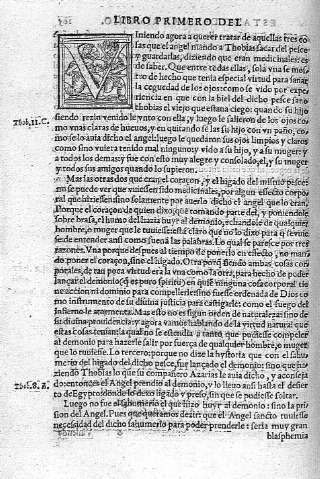 LIBRO PRIMERO DEL
Iniendo agora a querer tratar de aquellas tres co
sas que el angel mando a Thobias sacar del pesce
y guardarlas, diziendo que eran medicinales es
de saber. Que entre todas ellas, sola vna se mos
tro de hecho que tenia especial virtud para sanar
la ceguedad de los ojos: como se vido por expe
riencia en que con la hiel del dicho pesce sano
Thobias el viejo que estaua ciego: quando su hijo
siendo rezin venido le vnto con ella, y luego le salieron de los ojos co
mo vnas claras de hueuos, y en quitando se las su hijo con vn paño, co
mo se lo auia dicho el angel: luego le quedaron sus ojos limpios y claros
como sino vuiera tenido mal ninguno: y vido a su hijo, y a su muger: y
a todos los demas: y fue con esto muy alegre y consolado, el, y su muger
y todos sus amigos quando lo supieron.
Thob. 11. C.
Mas las otras dos que eran el coraçon, y el higado del mismo pesce:
no se puede ver que vuiessen sido medicinales, por algun effecto corpo
ral que hiziessen: sino solamente por auerlo dicho el angel que lo eran.
Porque el coraçon: de quien dixo, que tomando parte del, y poniendole
sobre brasa, el humo del haria huyr al demonio, echandole de qualquier
hombre, o muger que le tuuiesse: està claro que no lo dixo para q̃ se vuie
se de entender ansi como suena las palabras. Lo qual se paresce por tres
razones. Vna porque despues al tiempo de ponerlo en effecto, no man
do poner el coraçon, sino el higado. Otra porq̃ siendo ambas cosas cor
porales, de tan poca virtud era la vna como la otra, para hecho de poder
lançar el demonio (q̃ es puro spiritu) en quiẽ ninguna cosa corporal tie
ne accion, ni dominio para compellerle: sino fuesse ordenada de Dios co
mo instrumento de su diuina justicia para castigarle: como el fuego del
infierno le atormenta. Mas esto no es segun orden de naturaleza: sino de
su diuina prouidencia: y agora vamos hablando de la virtud natural que
estas cosas tenian: la qual no se estendia a tanto que pudiesse compeler
al demonio para hazerle salir por fuerça de qualquier hombre, o muger
que lo tuuiesse. Lo tercero: porque no dize la hystoria que con el sahu
merio del higado del dicho pesce, fue lançado el demonio: sino que ha
ziendo Thobias lo que su compañero Azarias le auia dicho, y aconseja
do: entonces el Angel prendio al demonio, y lo lleuo ansi hasta el desier
to de Egypto: donde lo dexo ligado y preso, sin que se pudiesse soltar.
Thob. 8. a.
Luego no fue el sahumerio el que hizo huyr al demonio: sino la pri
sion del Angel. Pues que queramos dezir: que el Angel sancto tuuiesse
necessidad del dicho sahumerio para poder prenderle: seria muy gran
blasphemia